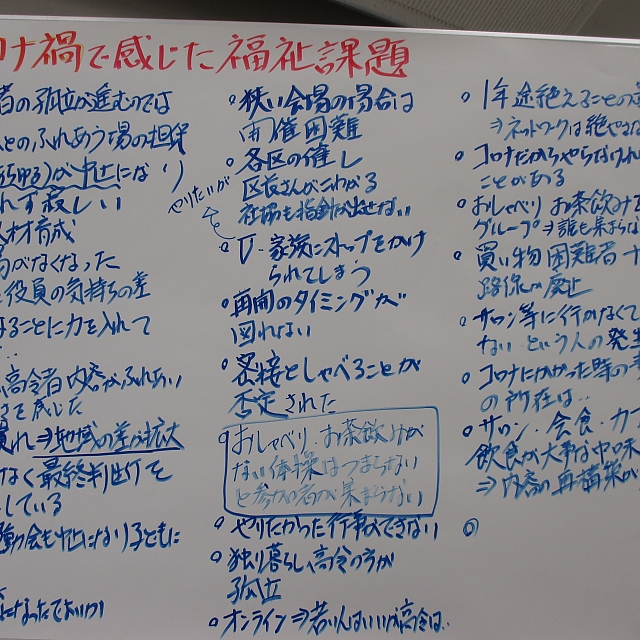 ロナ禍で感じた福祉課題
者の孤立が進むのでは
とのふれあう場の担保
が中止になり
れず寂しい
人材育成
がなくなった
と役員の気持ちの差
ることに力を入れて
高令者 内容がふれあい
さを感じた
慣れ⇒地域の差が拡大
なく最終判断を
している
会も中止になり子ども に
狭い会場の場合は
開催困難
各区の催し
やりたいが
区長さんがこわがる
社協も指針が出せない
V・家族にストップをかけ
られてしまう
再開のタイミングが
図れない
密接としゃべることが
否定された
おしゃべり・お茶飲みが
ない体操はつまらない
と参加者が集まらない
やりたかった行事ができない
独り暮らし高令の方が
孤立
オンライン⇒若い人はいいが高令は‥
1年途絶えることの
⇒ネットワークは絶やさな
コロナだからやらなけれ
ことがある
おしゃべり お茶飲み
グループ⇒誰も集まらな
買い物困難者
路線の廃止
サロン等に行かなくて
ない という人の発生
コロナにかかった時の
の所在は‥
サロン・会食・カ
飲食が大事な中味
⇒内容の再構築が